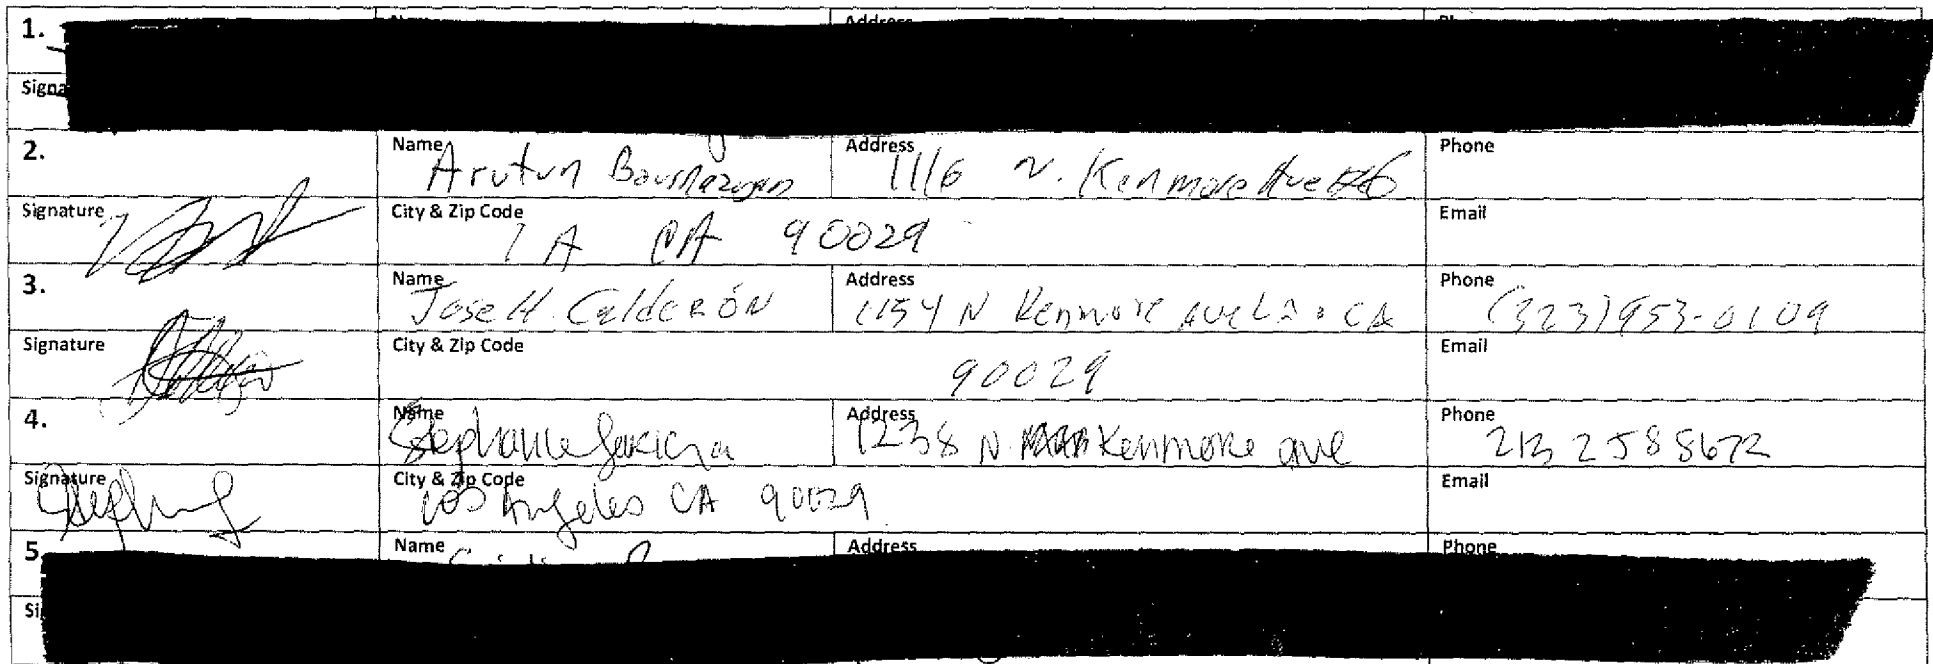 1.
Signa
2. Name Arutun Address 1116 N. Kenmore Ave Phone
Signature City & Zip Code LA CA 90029 Email
3. Name Jose H. CaldeRÓN Address 1154 N Kenmore Ave LA. CA Phone (323) 953-0109
Signature City & Zip Code 90029 Email
4. Name Stephanie Address 1238 N. Kenmore ave Phone 213 258 8672
Signature City & Zip Code Los Angeles CA 90029 Email
5. Name Address Phone
Si